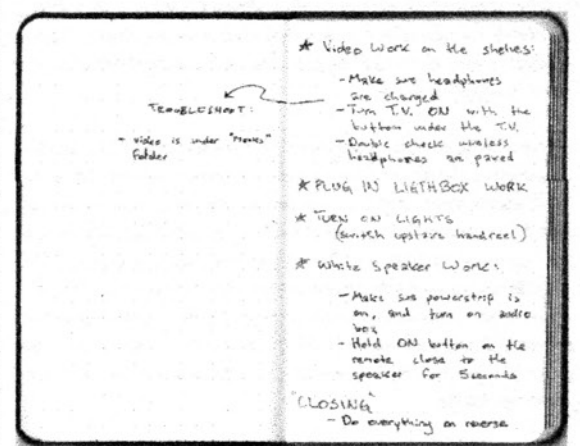 TROUBLESHOOT:
- Video is under "Movies"
folder
* Video Work on the shelves:
- Make sure headphones
are charged
- Turn T.V. ON with the
button under the T.V.
- Double check wireless
headphones are paired
* PLUG IN LIGTHBOX WORK
* TURN ON LIGHTS
(switch upstairs handreel)
* White Speaker Work:
- Make sure powerstrip is
on, and turn on audio
box
- Hold ON button on the
remote close to the
speaker for 5 seconds
"CLOSING"
- Do everything on reverse